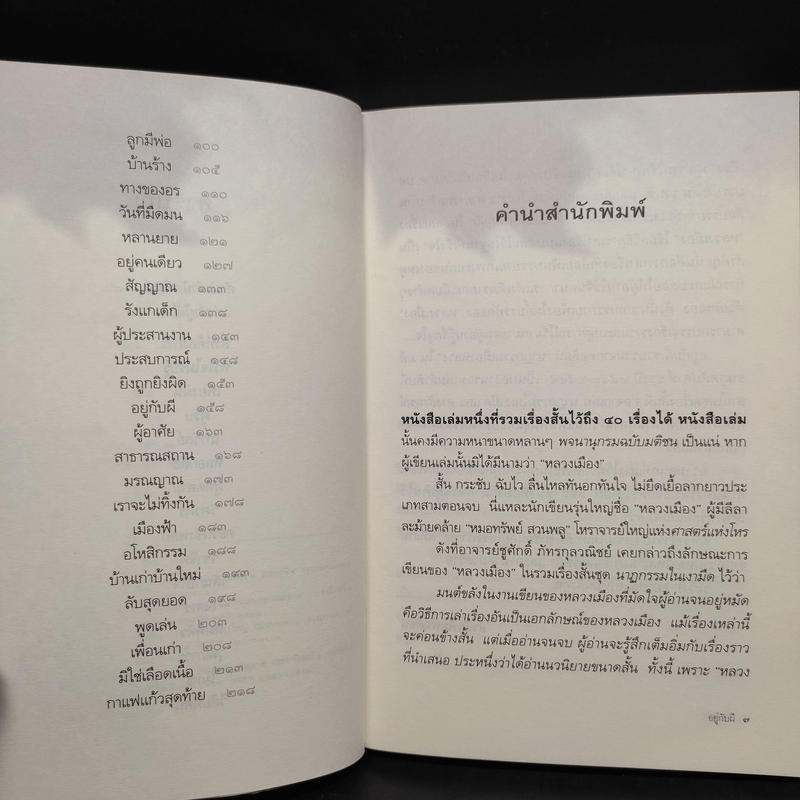 ลูกมีพ่อ ๑๐๐
บ้านร้าง ๑๐๕
ทางของอร ๑๑๐
วันที่มืดมน ๑๑๖
หลานยาย ๑๒๑
อยู่คนเดียว ๑๒๗
สัญญาณ ๑๓๓
รังแกเด็ก ๑๓๘
ผู้ประสานงาน ๑๔๓
ประสบการณ์ ๑๔๘
ยิงถูกยิงผิด ๑๕๓
อยู่กับผี ๑๕๘
ผู้อาศัย ๑๖๓
สาธารณสถาน ๑๖๘
มรณญาณ ๑๗๓
เราจะไม่ทิ้งกัน ๑๗๘
เมืองฟ้า ๑๘๓
อโหสิกรรม ๑๘๘
บ้านเก่าบ้านใหม่ ๑๙๓
ลับสุดยอด ๑๙๘
พูดเล่น ๒๐๓
เพื่อนเก่า ๒๐๘
มิใช่เลือดเนื้อ ๒๑๓
กาแฟแก้วสุดท้าย ๒๑๘
คำนำสำนักพิมพ์
หนังสือเล่มหนึ่งที่รวมเรื่องสั้นไว้ถึง ๔๐ เรื่องได้ หนังสือเล่ม
นั้นคงมีความหนาขนาดหลานๆ พจนานุกรมฉบับมติชน เป็นแน่ หาก
ผู้เขียนเล่มนั้นมิได้มีนามว่า "หลวงเมือง"
สั้น กระชับ ฉับไว ลื่นไหลทันอกทันใจ ไม่ยืดเยื้อลากยาวประ
เภทสามตอนจบ นี่แหละนักเขียนรุ่นใหญ่ชื่อ "หลวงเมือง" ผู้มีลีลา
ละม้ายคล้าย "หมอทรัพย์ สวนพลู" โหราจารย์ใหญ่แห่งศาสตร์แห่งโหร
ดังที่อาจารย์ชูศักดิ์ ภัทรกุลวณิชย์ เคยกล่าวถึงลักษณะการ
เขียนของ "หลวงเมือง" ในรวมเรื่องสั้นชุด นาฏกรรมในเงามืด ไว้ว่า
มนต์ขลังในงานเขียนของหลวงเมืองที่มัดใจผู้อ่านจนอยู่หมัด
คือวิธีการเล่าเรื่องอันเป็นเอกลักษณ์ของหลวงเมือง แม้เรื่องเหล่านี้
จะค่อนข้างสั้น แต่เมื่ออ่านจนจบ ผู้อ่านจะรู้สึกเต็มอิ่มกับเรื่องราว
ที่นำเสนอ ประหนึ่งว่าได้อ่านนวนิยายขนาดสั้น ทั้งนี้ เพราะ "หลวง
อยู่กับผี ๓